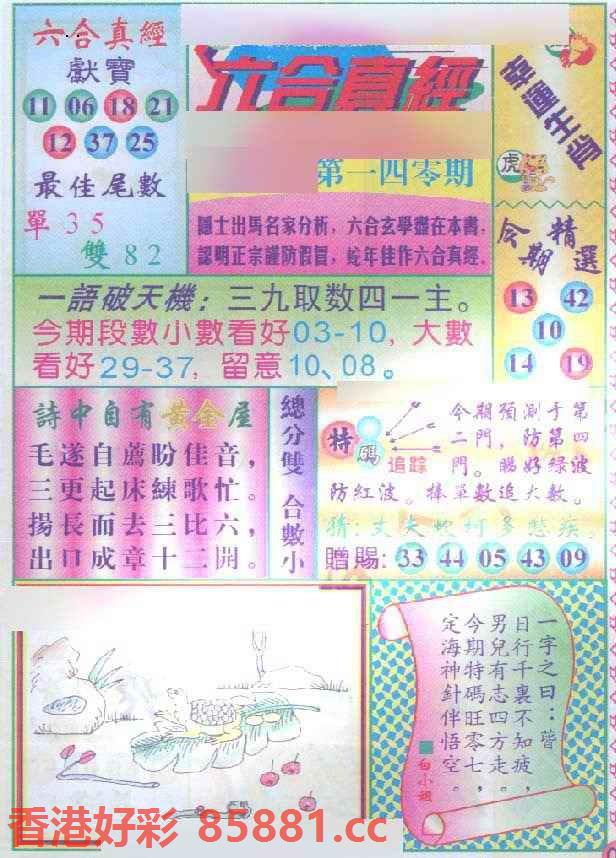 六合真經
獻寶
11 06 18 21
12 37 25
最佳尾數
單 3 5
雙 8 2
六合真經
第一四零期
隱士出馬名家分析，六合玄學盡在本書，
認明正宗謹防假冒，蛇年佳作六合真經．
幸運生肖
虎
今期精選
13 42
10
14 19
一語破天機：三九取数四一主。
今期段數小數看好03-10，大數
看好29-37，留意10、08。
詩中自有黃金屋
毛遂自薦盼佳音，
三更起床練歌忙。
揚長而去三比六，
出口成章十二開。
總分雙 合數小
特碼
追踪
今期預測于第
二門，防第四
門。睇好绿波
防紅波。捧單數追大數。
猜：丈夫
多愁疾
贈賜：33 44 05 43 09
一字之曰：皆
日行千裏不知疲，
男兒有志四方走。
今期特碼旺零七，
定海神針伴悟空。
白小姐
香港好彩 85881.cc